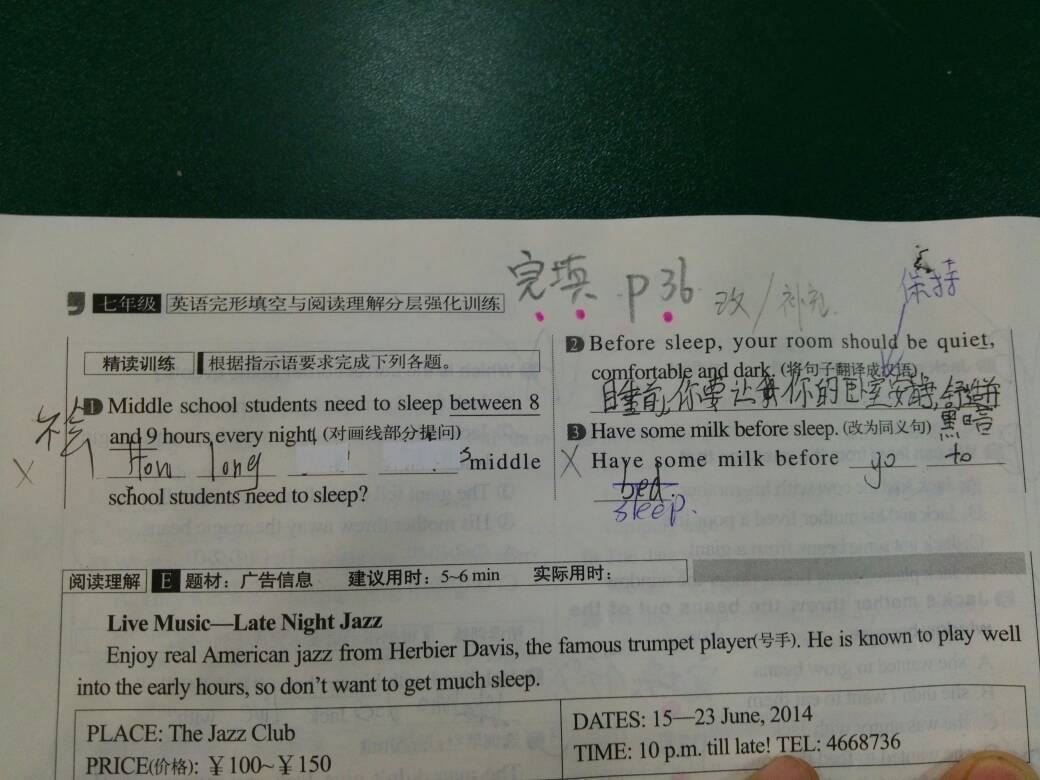 完填 p36 改/补充
保持
七年级 英语完形填空与阅读理解分层强化训练
精读训练 根据指示语要求完成下列各题。
1 Middle school students need to sleep between 8
and 9 hours every night. (对画线部分提问)
X How long middle
school students need to sleep?
2 Before sleep, your room should be quiet,
comfortable and dark. (将句子翻译成汉语)
睡前,你要让你的卧室安静,舒适并
黑暗
3 Have some milk before sleep. (改为同义句)
X Have some milk before go to
bed.
sleep.
阅读理解 E 题材：广告信息 建议用时：5~6 min 实际用时：
Live Music—Late Night Jazz
Enjoy real American jazz from Herbier Davis, the famous trumpet player(号手). He is known to play well
into the early hours, so don't want to get much sleep.
PLACE: The Jazz Club
PRICE(价格): ¥100~¥150
DATES: 15—23 June, 2014
TIME: 10 p.m. till late! TEL: 4668736